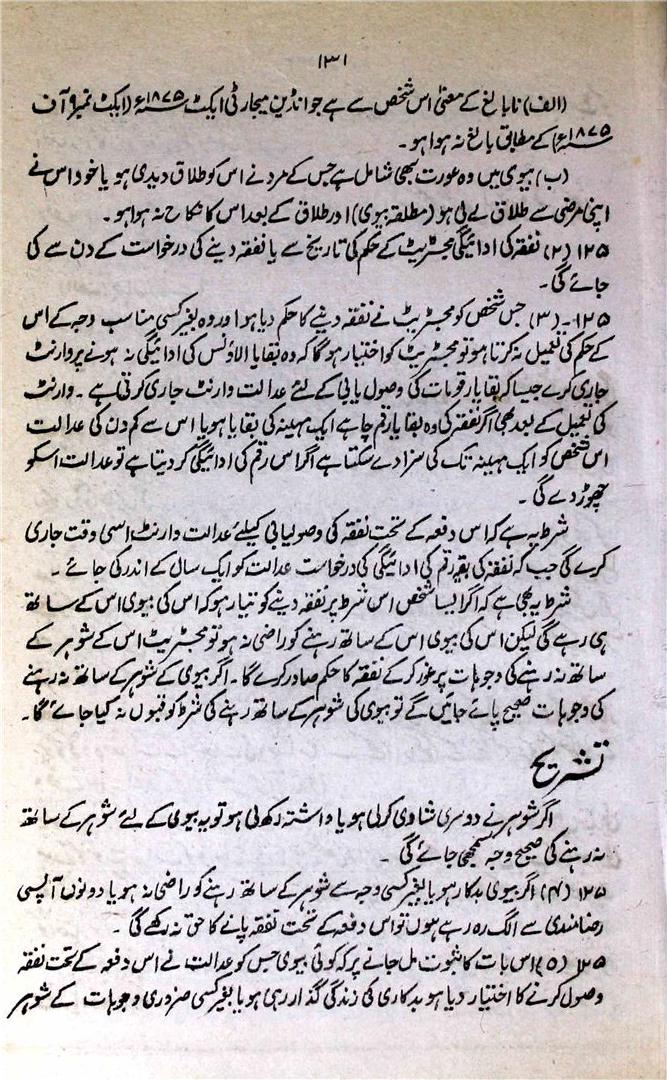 ۱۳۱
(الف) نابالغ کے معنیٰ اس شخص سے ہے جو انڈین میجارٹی ایکٹ ۱۸۷۵ء (ایکٹ نمبر ۹ آف
۱۸۷۵ء) کے مطابق بالغ نہ ہوا ہو۔
(ب) بیوی میں وہ عورت بھی شامل ہے جس کے مرد نے اس کو طلاق دیدی ہو یا خود اس نے
اپنی مرضی سے طلاق لے لی ہو (مطلقہ بیوی) اور طلاق کے بعد اس کا نکاح نہ ہوا ہو۔
۱۲۵ (۲) نفقہ کی ادائیگی مجسٹریٹ کے حکم کی تاریخ سے یا نفقہ دینے کی درخواست کے دن سے کی
جائے گی۔
۱۲۵۔ (۳) جس شخص کو مجسٹریٹ نے نفقہ دینے کا حکم دیا ہو اور وہ بغیر کسی مناسب وجہ کے اس
کے حکم کی تعمیل نہ کرتا ہو تو مجسٹریٹ کو اختیار ہو گا کہ وہ بقایا الاؤنس کی ادائیگی نہ ہونے پر وارنٹ
جاری کرے جیسا کہ بقایا رقومات کی وصول یابی کے لئے عدالت وارنٹ جاری کرتی ہے۔ وارنٹ
کی تعمیل کے بعد بھی اگر نفقہ کی وہ بقایا رقم چاہے ایک مہینہ کی بقایا ہو یا اس سے کم دن کی عدالت
اس شخص کو ایک مہینہ تک کی سزا دے سکتا ہے اگر اس رقم کی ادائیگی کر دیتا ہے تو عدالت اسکو
چھوڑ دے گی۔
شرط یہ ہے کہ اس دفعہ کے تحت نفقہ کی وصولیابی کیلئے عدالت وارنٹ اسی وقت جاری
کرے گی جب کہ نفقہ کی بقیہ رقم کی ادائیگی کی درخواست عدالت کو ایک سال کے اندر کی جائے۔
شرط یہ بھی ہے کہ اگر ایسا شخص اس شرط پر نفقہ دینے کو تیار ہو کہ اس کی بیوی اس کے ساتھ
ہی رہے گی لیکن اس کی بیوی اس کے ساتھ رہنے کو راضی نہ ہو تو مجسٹریٹ اس کے شوہر کے
ساتھ نہ رہنے کی وجوہات پر غور کر کے نفقہ کا حکم صادر کرے گا۔ اگر بیوی کے شوہر کے ساتھ نہ رہنے
کی وجوہات صحیح پائے جائیں گے تو بیوی کی شوہر کے ساتھ رہنے کی شرط کو قبول نہ کیا جائے گا۔
تشریح
اگر شوہر نے دوسری شادی کر لی ہو یا داشتہ رکھ لی ہو تو یہ بیوی کے لئے شوہر کے ساتھ
نہ رہنے کی صحیح وجہ سمجھی جائے گی۔
۱۲۷ (۴) اگر بیوی بدکار ہو یا بغیر کسی وجہ سے شوہر کے ساتھ رہنے کو راضی نہ ہو یا دونوں آپسی
رضامندی سے الگ رہ رہے ہوں تو اس دفعہ کے تحت نفقہ پانے کا حق نہ رکھے گی۔
۱۲۵ (۵) اس بات کا ثبوت مل جانے پر کہ کوئی بیوی جس کو عدالت نے اس دفعہ کے تحت نفقہ
وصول کرنے کا اختیار دیا ہو بدکاری کی زندگی گذار رہی ہو یا بغیر کسی ضروری وجوہات کے شوہر